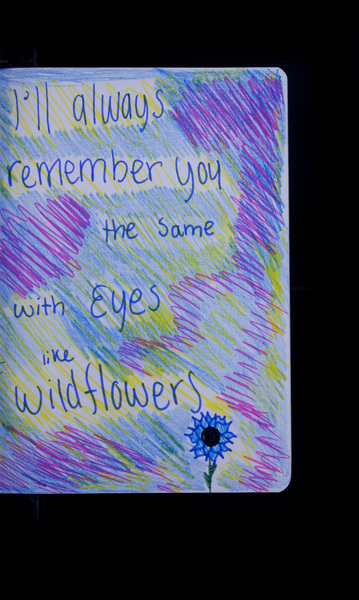 I'll always
remember you
the same
with Eyes
like
wildflowers